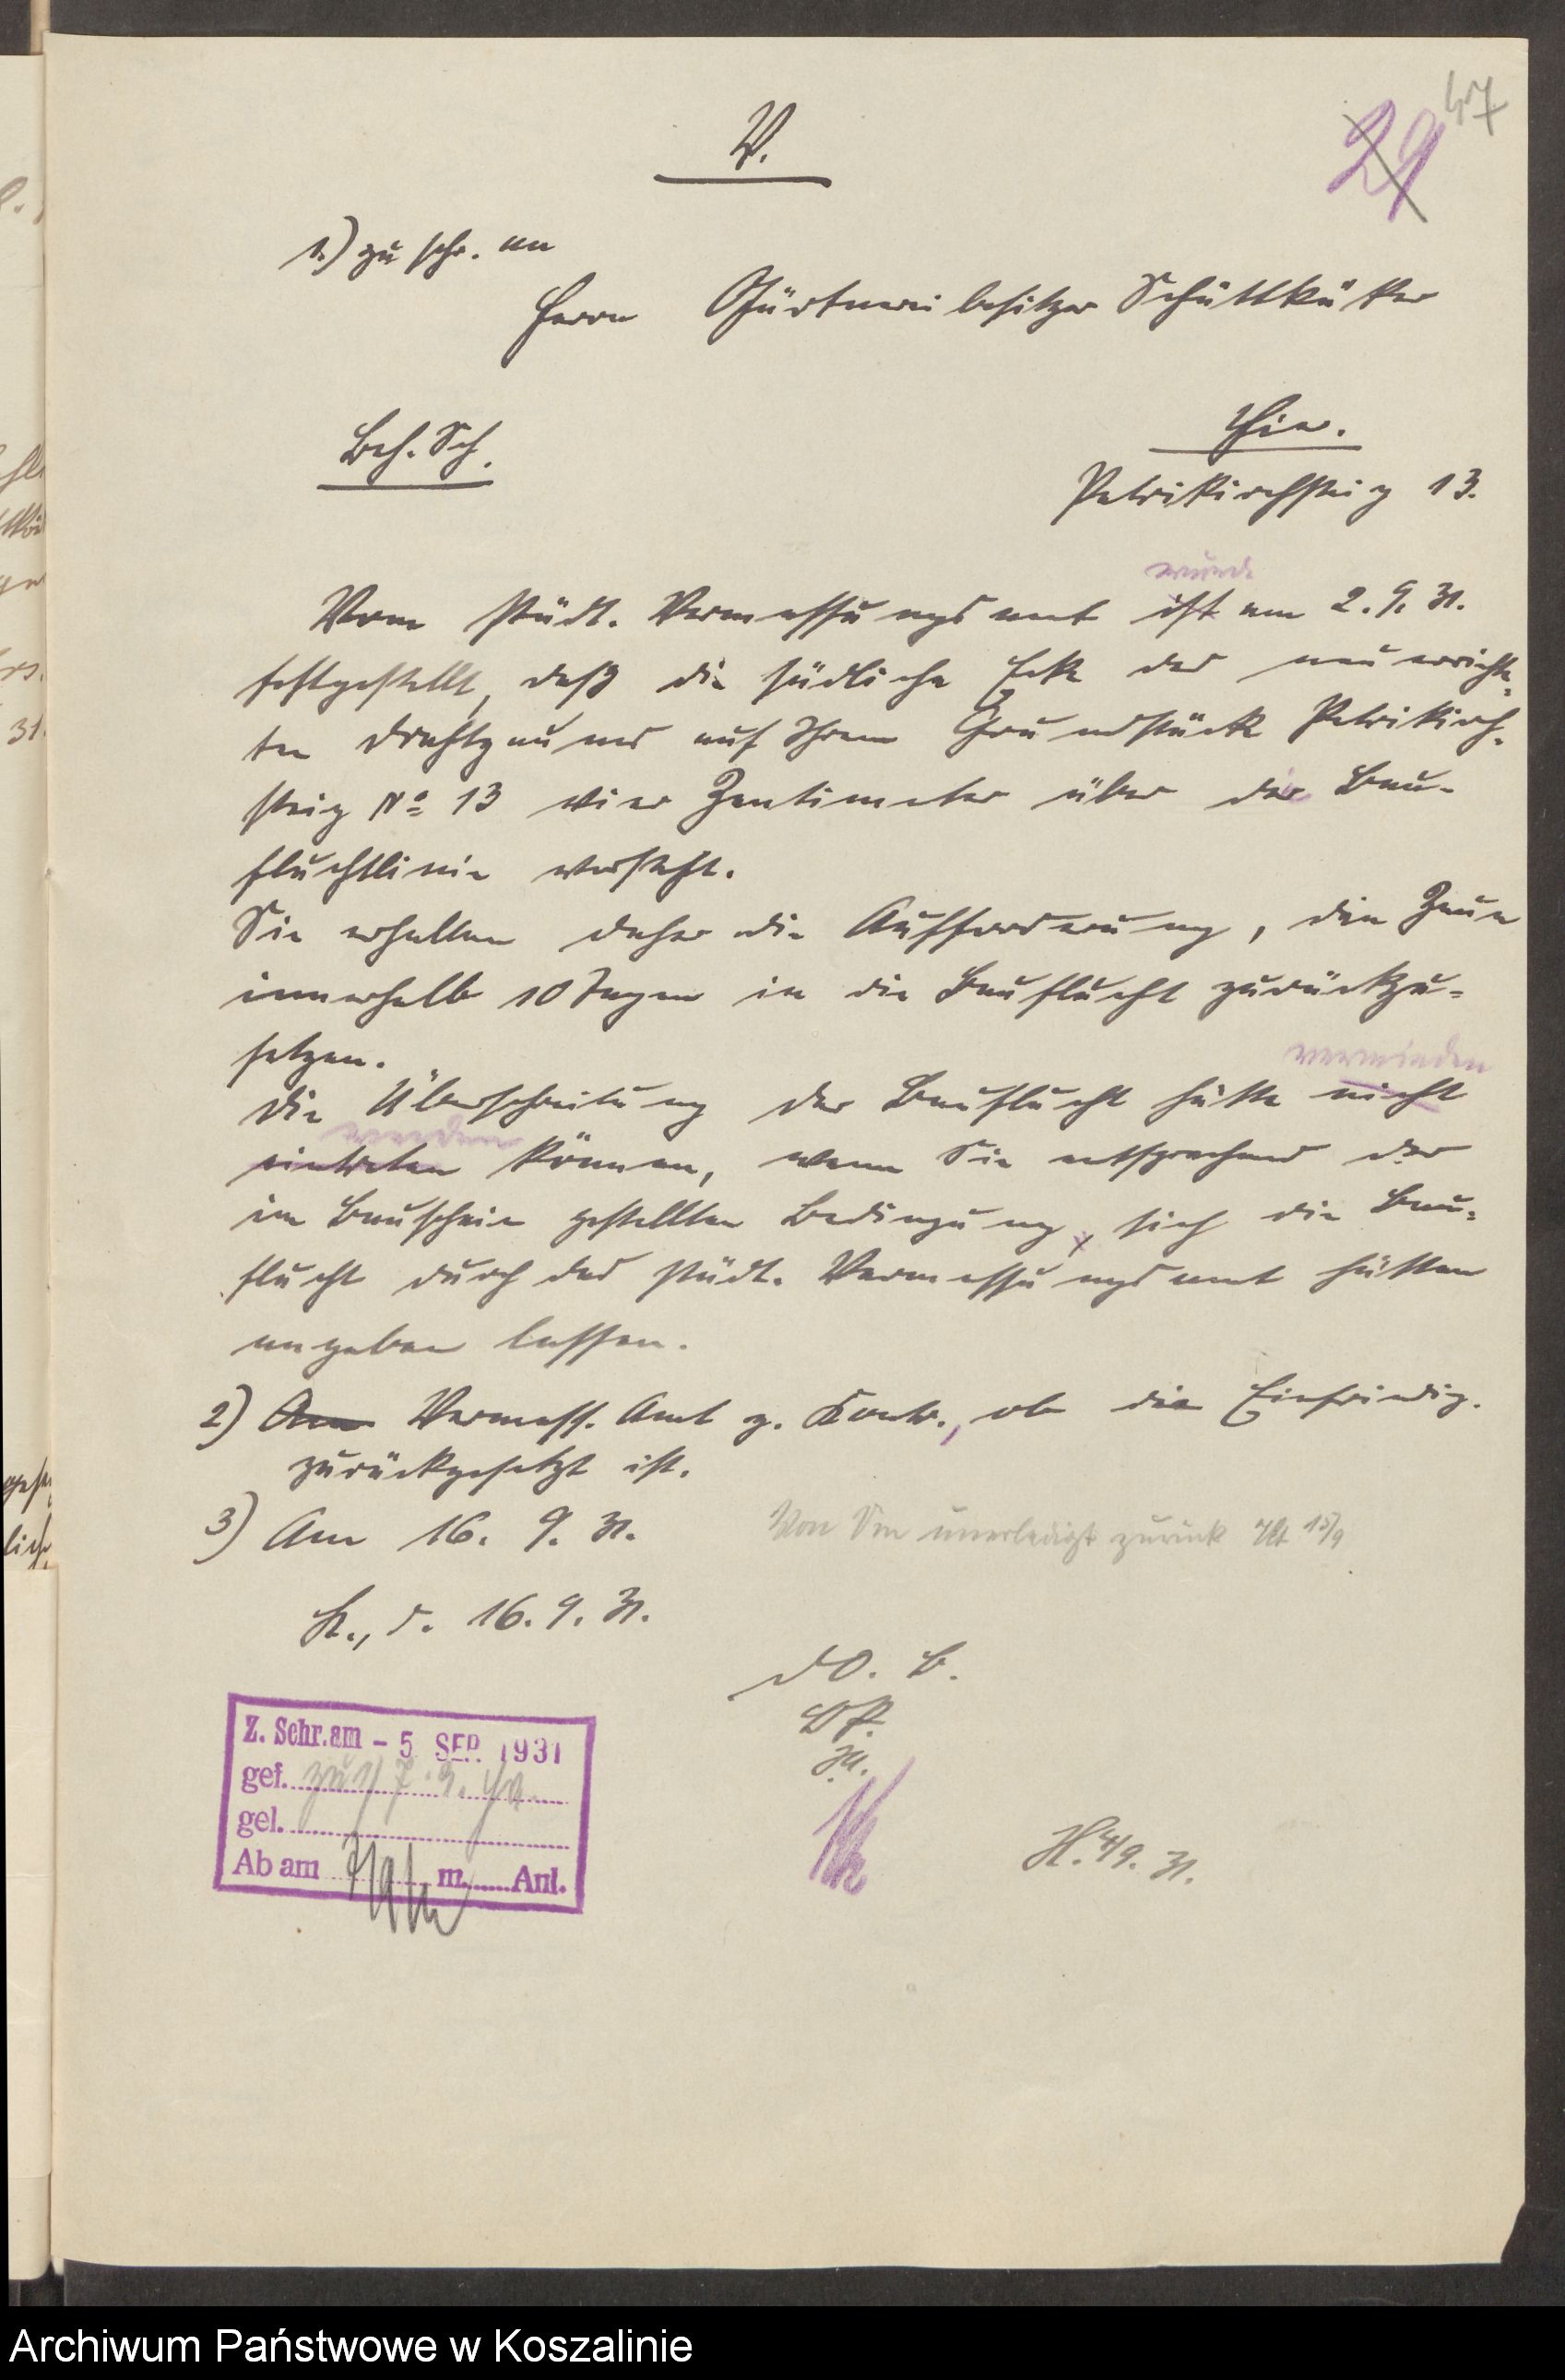 V.
29 47
1.) zu schr. an
Herrn Gärtnereibesitzer Schüttküker
Beh. Sch.
Hier.
Petrikirchsteig 13.
wurde
Vom städt. Vermessungsamt ist am 2.9.31.
festgestellt, daß die südliche Ecke des neuerrichte-
ten Drahtzauns auf Ihrem Grundstück Petrikirch-
steig No 13 vier Zentimeter über die Bau-
fluchtlinie vorsteht.
Sie erhalten daher die Aufforderung, den Zaun
innerhalb 10 Tagen in die Bauflucht zurückzu-
setzen.
vermieden
Die Überschreitung der Bauflucht hätte nicht
werden
eintreten können, wenn Sie entsprechend der
im Bauschein gestellten Bedingung, sich die Bau-
flucht durch das städt. Vermessungsamt hätten
angeben lassen.
2) Am Vermess. Amt z. Kontr., ob die Einfriedig.
zurückgesetzt ist.
3) Am 16. 9. 31.
Von unerledigt zurück 15/9
K., d. 16.9.31.
d O. B.
Z. Schr. am - 5. SEP. 1931
gef. zu 1) 7.9.
gel.
Ab am 7/9 m. Anl.
H. 4/9. 31.
Archiwum Państwowe w Koszalinie